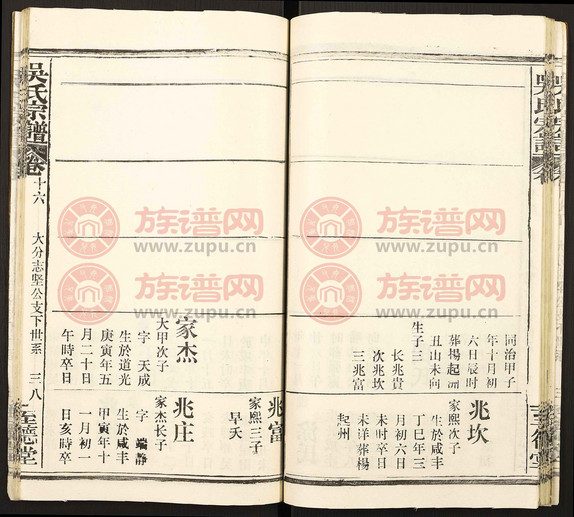 吳氏宗譜
同治甲子
年十月初
六日辰時
葬揚起洲
丑山未向
生子三
長兆貴
次兆坎
三兆富
兆坎
家熙次子
生於咸丰
丁巳年三
月初六日
未时卒日
未详葬楊
起州
兆富
家熙三子
早夭
家杰
大甲次子
字 天成
生於道光
庚寅年五
月二十日
午時卒日
兆庄
家杰长子
字 端静
生於咸丰
甲寅年十
一月初一
日亥時卒
吳氏宗譜
卷十六
大分志坚公支下世系
三八
至德堂
族谱网
www.zupu.cn
族谱网
www.zupu.cn
族谱网
www.zupu.cn
族谱网
www.zupu.cn